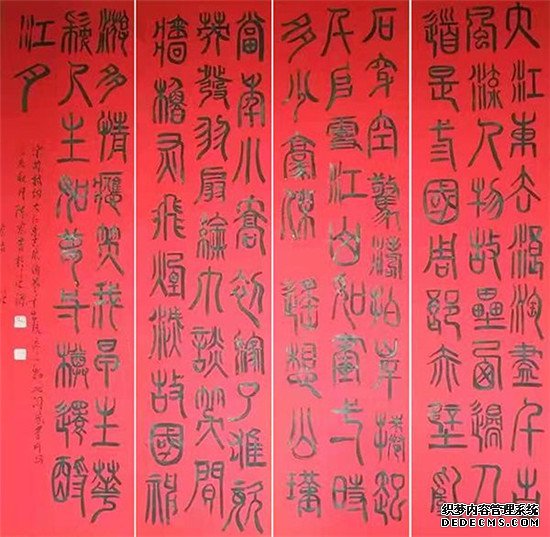 大江東去浪淘盡千古
風流人物故壘西邊人
道是三國周郎赤壁亂
石穿空驚濤拍岸捲起
千堆雪江山如畫一時
多少豪傑遙想公瑾
當年小喬初嫁了雄姿
英發羽扇綸巾談笑間
檣櫓灰飛煙滅故國神
遊多情應笑我早生華
髮人生如夢一樽還酹
江月
织梦内容管理系统
DEDECMS.COM